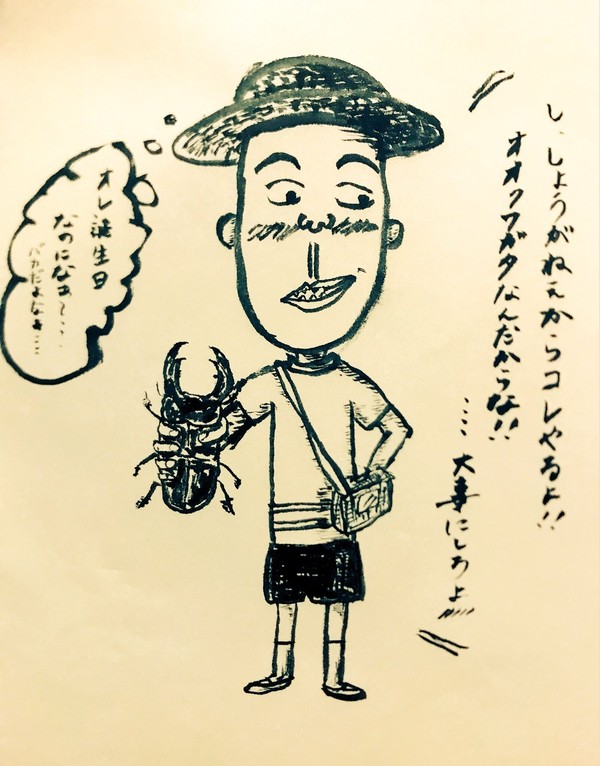 し、しょうがねぇからコレやるよ!!
オオクワガタなんだからな!!
……大事にしろよ
オレ誕生日
なのになぁ〜…
バカだよなぁ…